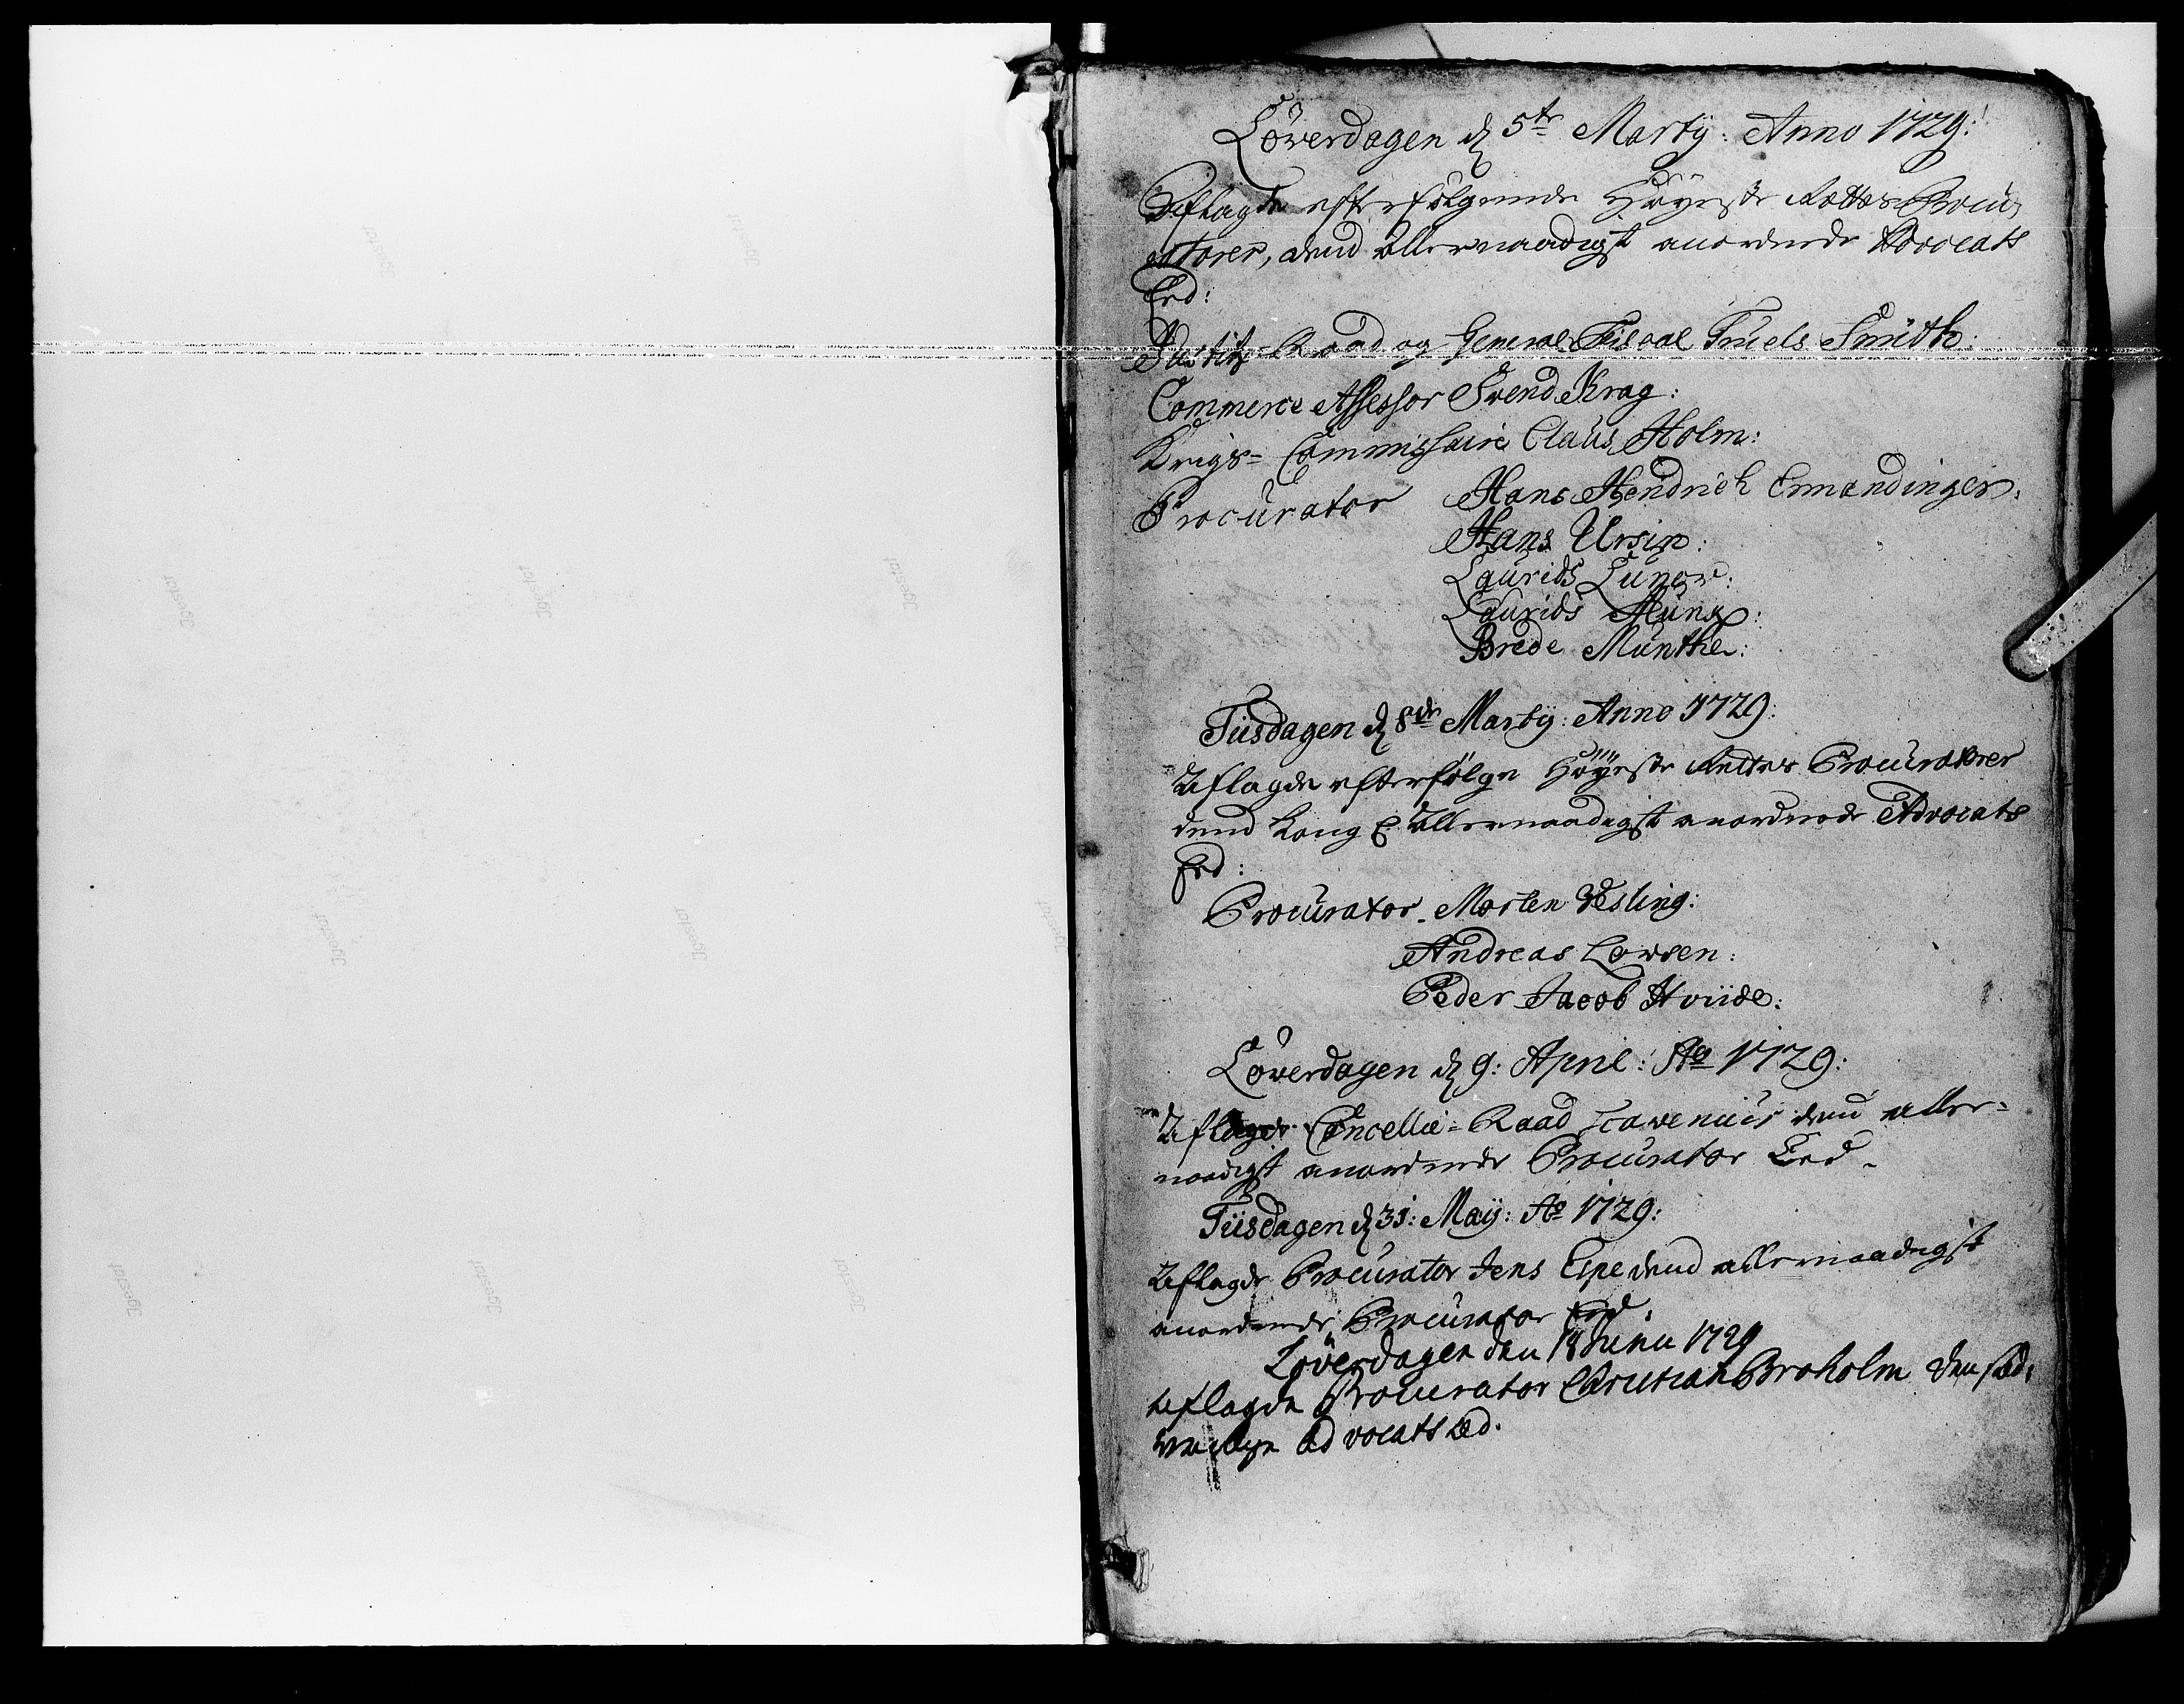 Löverdagen d 5te Martÿ: Anno 1729:
Aflagde efterfölgende Höyeste Rettes Procu
ratorer, dend allernaadigst anordnede Advocats
Eed:
Justitz-Raad og General Fiscal Truels Smith:
Commerce Assessor Svend Krag:
Krigs-Commissaire Claus Holm:
Procurator Hans Hendrich Ermandinger:
Hans Ursin:
Laurids Luno:
Laurids Munk:
Brede Munthe:
Tiisdagen d 8de Martÿ: Anno 1729:
Aflagde efterfölge Höyeste Rettes Procuratorer
dend Kong: allernaadigst anordnede Advocats
Eed:
Procurator Morten Vesling:
Andreas Lowsen:
Peder Jacob Hviide:
Löverdagen d 9: April: Ao 1729:
Aflagde Cancellie-Raad Scavenius dend aller-
naadigst anordnede Procurator Eed-
Tiisdagen d 31: Maÿ: Ao 1729:
Aflagde Procurator Jens Eipe dend allernaadigst
anordnede Procurator Eed:
Löverdagen den 18 Junii 1729
aflagde Procurator Christian Broholm den sæd-
vanlige advocats Eed.